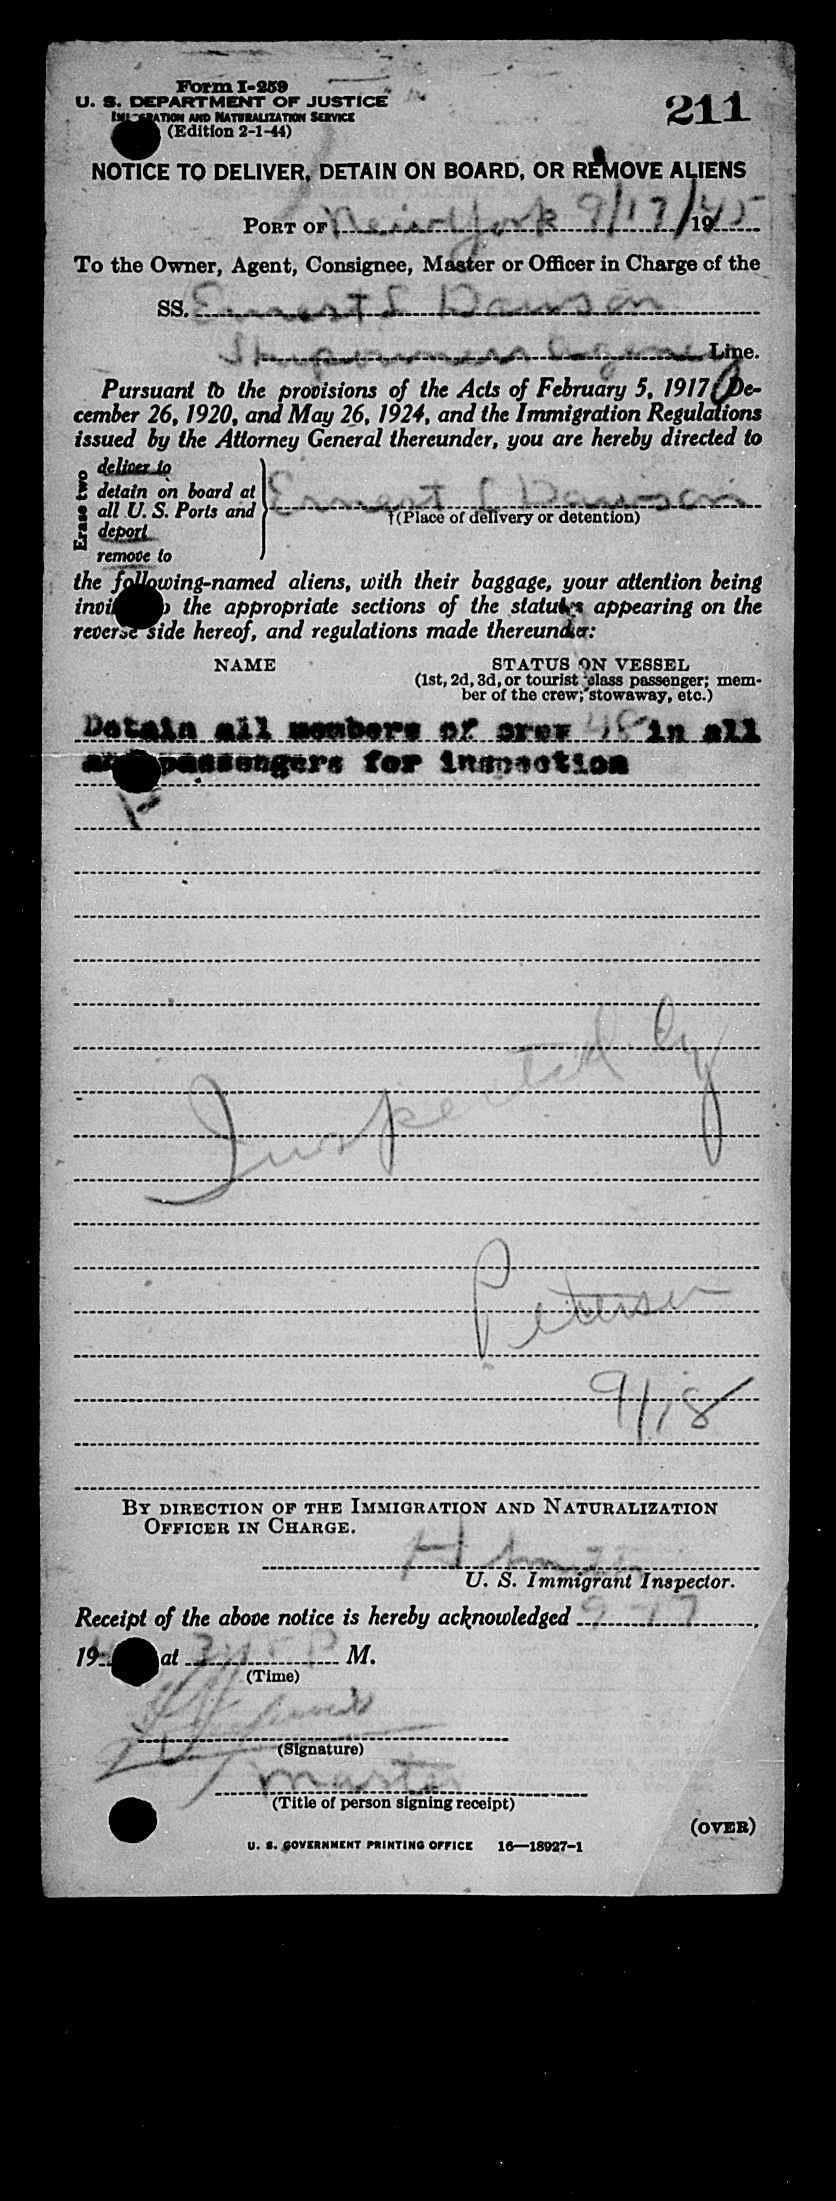 Form I-259
U. S. DEPARTMENT OF JUSTICE
IMMIGRATION AND NATURALIZATION SERVICE
(Edition 2-1-44)
211
NOTICE TO DELIVER, DETAIN ON BOARD, OR REMOVE ALIENS
PORT OF New York 9/17/1945
To the Owner, Agent, Consignee, Master or Officer in Charge of the
SS. Ernest L Dawson
Line.
Pursuant to the provisions of the Acts of February 5, 1917, De-
cember 26, 1920, and May 26, 1924, and the Immigration Regulations
issued by the Attorney General thereunder, you are hereby directed to
Erase two
deliver to
detain on board at
all U. S. Ports and
deport
remove to
Ernest L Dawson
†(Place of delivery or detention)
the following-named aliens, with their baggage, your attention being
the appropriate sections of the statutes appearing on the
reverse side hereof, and regulations made thereunder:
NAME
STATUS ON VESSEL
(1st, 2d, 3d, or tourist class passenger; mem-
ber of the crew; stowaway, etc.)
Detain all members of crew 48 in all
passengers for inspection
Inspected by
Petersen
9/18
BY DIRECTION OF THE IMMIGRATION AND NATURALIZATION
OFFICER IN CHARGE.
U. S. Immigrant Inspector.
Receipt of the above notice is hereby acknowledged 9-17,
19 at M.
(Time)
(Signature)
Master
(Title of person signing receipt)
(OVER)
U. S. GOVERNMENT PRINTING OFFICE 16—18927-1